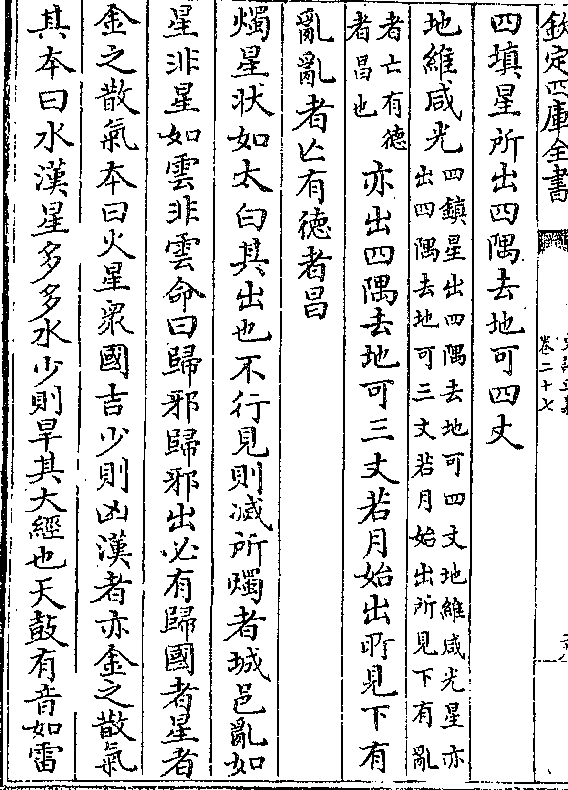 欽定四庫全書
卷二十七
四填星所出四隅去地可四丈
地維咸光
四鎮星出四隅去地可四丈地維咸光星亦
出四隅去地可三丈若月始出所見下有亂
者亡有德
者昌也
亦出四隅去地可三丈若月始出所見下有
亂亂者亡有徳者昌
燭星狀如太白其出也不行見則滅所燭者城邑亂如
星非星如雲非雲命曰歸邪歸邪出必有歸國者星者
金之散氣本曰火星衆國吉少則凶漢者亦金之散氣
其本曰水漢星多多水少則旱其大經也天鼓有音如雷